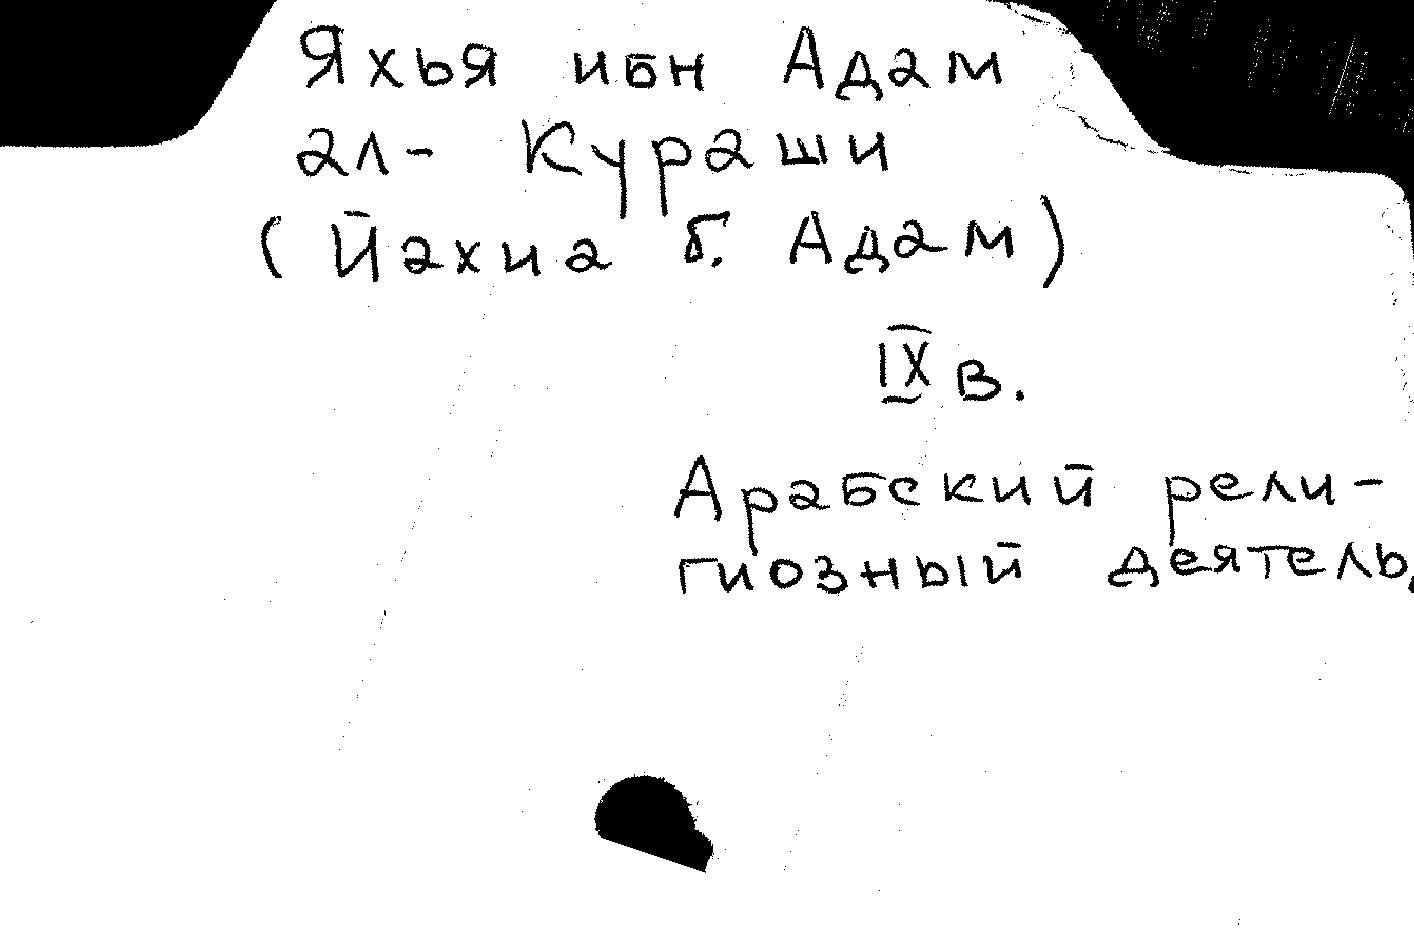 Яхья ибн Адам
ал-Кураши
(Йахиа б. Адам)
IX в.
Арабский рели-
гиозный деятель,